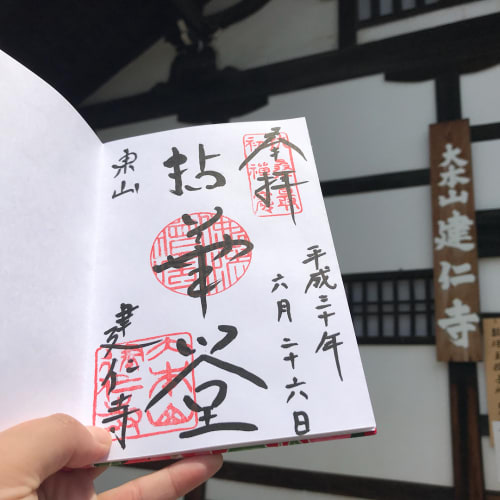 奉拝
平成三十年
六月二十六日
拈華堂
東山
建仁寺
大本山
建仁寺
大本山 建仁寺